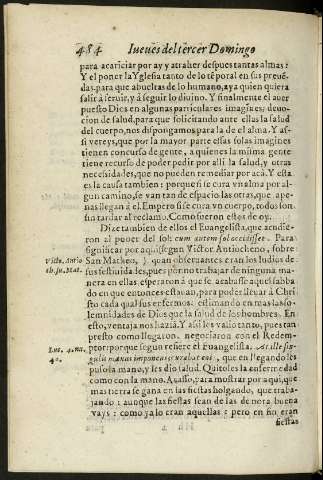 484 Iueues del tercer Domingo
para acariciar por ay y atraher despues tantas almas?
Y el poner la Yglesia tanto de lo tẽporal en sus preuẽ-
das, para que abueltas de lo humano, aya quien quiera
salir à seruir, y à seguir lo diuino. Y finalmente el auer
puesto Dios en algunas particulares imagines, deuo-
cion de salud, para que solicitando ante ellas la salud
del cuerpo, nos dispongamos para la de el alma. Y as-
si vereys, que por la mayor parte essas solas imagines
tienen concurso de gente, a quienes la misma gente
tiene recurso de poder pedir alli la salud, y otras
necessidades, que no pueden remediar por acà. Y esta
es la causa tambien: porque si se cura vn alma por al-
gun camino, se van tan de espacio las otras, que ape-
nas llegan à el. Empero si se cura vn cuerpo, todos son
sin tardar al reclamo. Como fueron estos de oy.
Dize tambien de ellos el Euangelista, que acudie-
ron al poner del sol: cum autem sol occidisset. Para
significar por aqui (segun Victor Antiocheno, sobre
Victo. Antio
ch. su. Mat.
San Matheo,) quan obseruantes eran los Iudios de
sus festiuidades, pues por no trabajar de ninguna ma-
nera en ellas esperaron à que se acabasse aquel sabba-
do en que entonces estauan, para poder lleuar à Chri
sto cada qual sus enfermos: estimando en mas las so-
lemnidades de Dios que la salud de los hombres. En
esto, ventaja nos hazià. Y assi les valio tanto, pues tan
presto como llegaron, negociaron con el Redemp-
tor: porque segun refiere el Euangelista. At ille sin-
Luc. 4. nu.
40.
gulis manus imponens curabat eos, que en llegando les
puso la mano, y les dio salud. Quitoles la enfermedad
como con la mano. Acasso, para mostrar por aqui, que
mas tierra se gana en las fiestas holgando, que traba-
jando: aunque las fiestas sean de las de nora buena
vays: como ya lo eran aquellas: pero en fin eran
fiestas